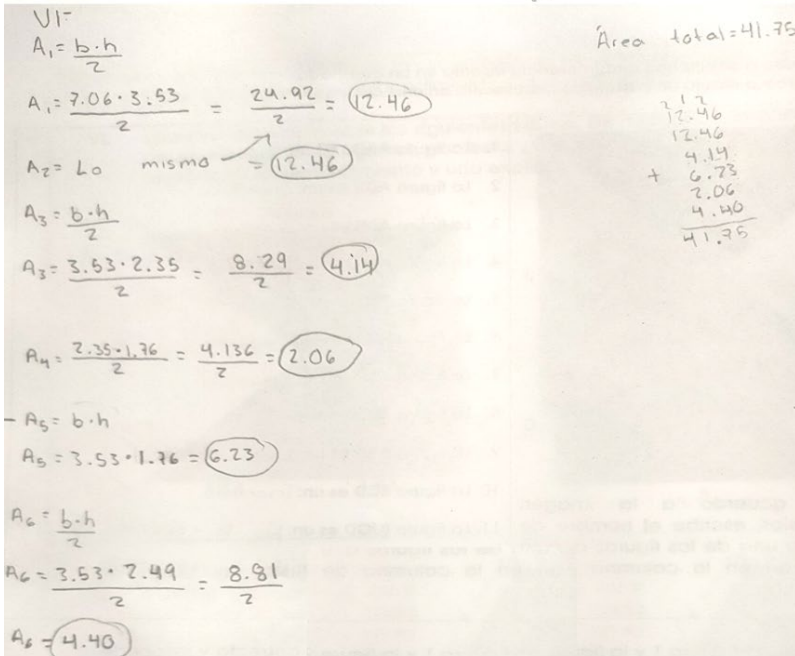 VI-
A₁ = b·h / 2
A₁ = 7.06 · 3.53 / 2 = 24.92 / 2 = 12.46
A₂ = Lo mismo = 12.46
A₃ = b·h / 2
A₃ = 3.53 · 2.35 / 2 = 8.29 / 2 = 4.14
A₄ = 2.35 · 1.76 / 2 = 4.136 / 2 = 2.06
- A₅ = b·h
A₅ = 3.53 · 1.76 = 6.23
A₆ = b·h / 2
A₆ = 3.53 · 2.49 / 2 = 8.81 / 2
A₆ = 4.40
Área total = 41.75
2 1 2
12.46
12.46
4.14
+ 6.23
2.06
4.40
41.75